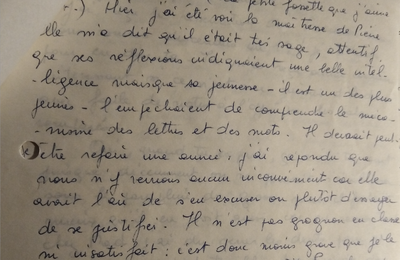 petite fossette que j'aime
..) Hier j'ai été voir la maîtresse de Pierre
elle m'a dit qu'il était très sage, attentif
que ses réflexions indiquaient une belle intel-
-ligence mais que sa jeunesse - il est un des plus
jeunes - l'empêchaient de comprendre le méca-
-nisme des lettres et des mots. Il devrait peut-
être refaire une année ; j'ai répondu que
nous n'y verrions aucun inconvénient car elle
avait l'air de s'en excuser ou plutôt d'essayer
de se justifier. Il n'est pas grognon en classe
ni insatisfait ; c'est donc moins grave que je le